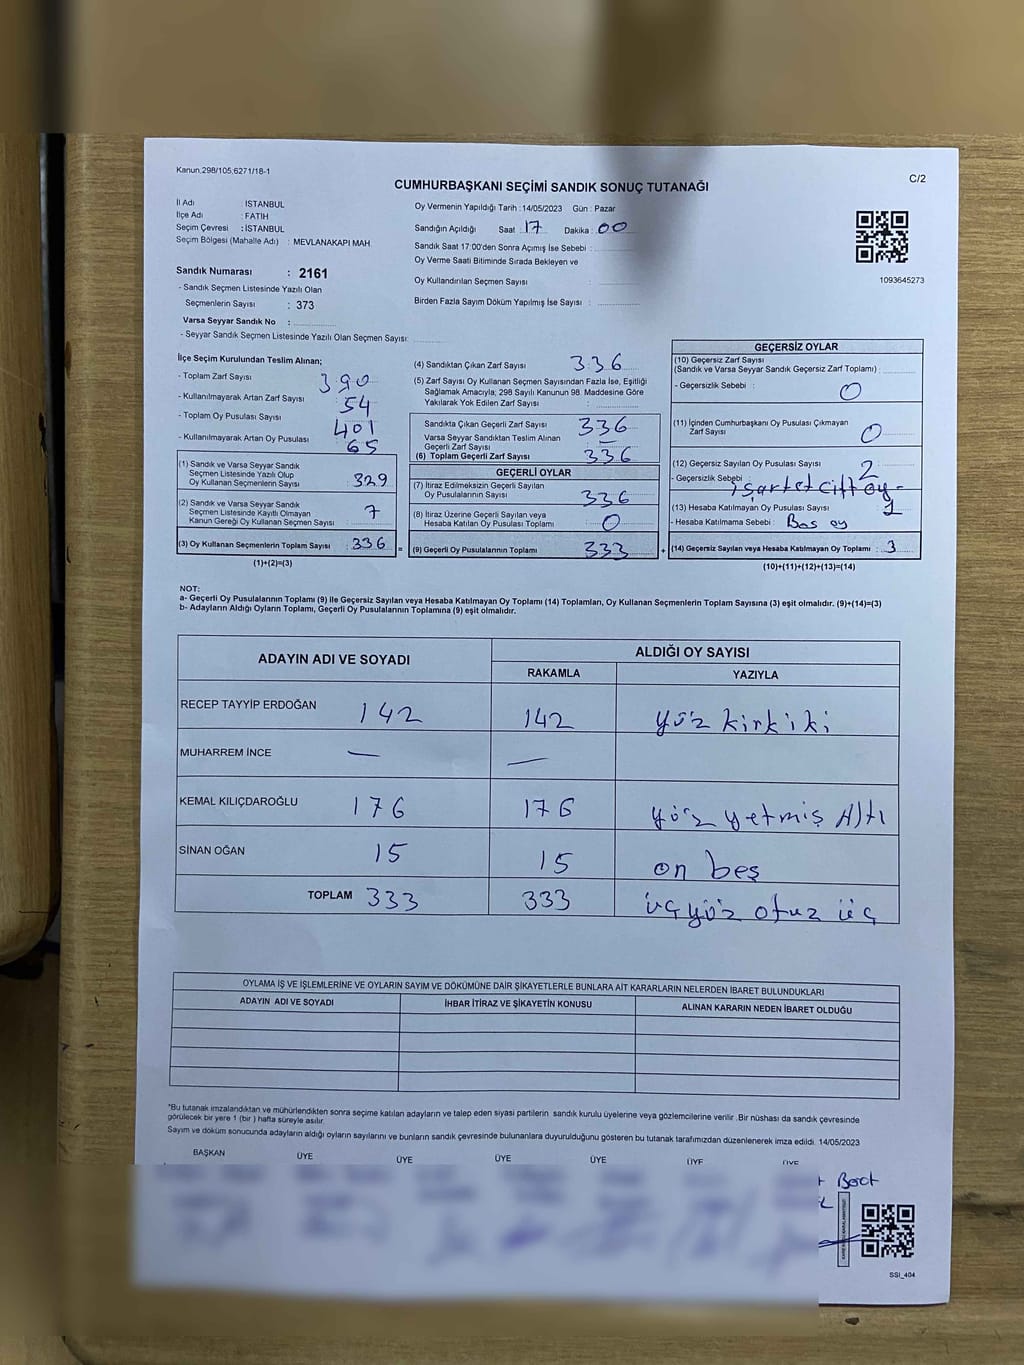 Kanun.298/105,6271/18-1
C/2
CUMHURBAŞKANI SEÇİMİ SANDIK SONUÇ TUTANAĞI
İl Adı : İSTANBUL
İlçe Adı : FATİH
Seçim Çevresi : İSTANBUL
Seçim Bölgesi (Mahalle Adı) : MEVLANAKAPI MAH.
Oy Vermenin Yapıldığı Tarih : 14/05/2023 Gün : Pazar
Sandığın Açıldığı Saat : 17 Dakika : 00
Sandık Saat 17:00'den Sonra Açımış İse Sebebi :
Oy Verme Saati Bitiminde Sırada Bekleyen ve
Oy Kullandırılan Seçmen Sayısı :
Birden Fazla Sayım Döküm Yapılmış İse Sayısı :
1093645273
Sandık Numarası : 2161
- Sandık Seçmen Listesinde Yazılı Olan
Seçmenlerin Sayısı : 373
Varsa Seyyar Sandık No :
- Seyyar Sandık Seçmen Listesinde Yazılı Olan Seçmen Sayısı:
İlçe Seçim Kurulundan Teslim Alınan;
- Toplam Zarf Sayısı 390
- Kullanılmayarak Artan Zarf Sayısı 54
- Toplam Oy Pusulası Sayısı 401
- Kullanılmayarak Artan Oy Pusulası 65
(1) Sandık ve Varsa Seyyar Sandık
Seçmen Listesinde Yazılı Olup
Oy Kullanan Seçmenlerin Sayısı : 329
(2) Sandık ve Varsa Seyyar Sandık
Seçmen Listesinde Kayıtlı Olmayan
Kanun Gereği Oy Kullanan Seçmen Sayısı : 7
(3) Oy Kullanan Seçmenlerin Toplam Sayısı : 336 =
(1)+(2)=(3)
(4) Sandıktan Çıkan Zarf Sayısı : 336
(5) Zarf Sayısı Oy Kullanan Seçmen Sayısından Fazla İse, Eşitliği
Sağlamak Amacıyla; 298 Sayılı Kanunun 98. Maddesine Göre
Yakılarak Yok Edilen Zarf Sayısı :
Sandıkta Çıkan Geçerli Zarf Sayısı : 336
Varsa Seyyar Sandıktan Teslim Alınan
Geçerli Zarf Sayısı : –
(6) Toplam Geçerli Zarf Sayısı : 336
GEÇERLİ OYLAR
(7) İtiraz Edilmeksizin Geçerli Sayılan
Oy Pusulalarının Sayısı : 336
(8) İtiraz Üzerine Geçerli Sayılan veya
Hesaba Katılan Oy Pusulası Toplamı : 0
(9) Geçerli Oy Pusulalarının Toplamı : 333 +
GEÇERSİZ OYLAR
(10) Geçersiz Zarf Sayısı
(Sandık ve Varsa Seyyar Sandık Geçersiz Zarf Toplamı) :
- Geçersizlik Sebebi : 0
(11) İçinden Cumhurbaşkanı Oy Pusulası Çıkmayan
Zarf Sayısı : 0
(12) Geçersiz Sayılan Oy Pusulası Sayısı : 2
- Geçersizlik Sebebi : işartet çift oy -
(13) Hesaba Katılmayan Oy Pusulası Sayısı : 1
- Hesaba Katılmama Sebebi : Bos oy
(14) Geçersiz Sayılan veya Hesaba Katılmayan Oy Toplamı : 3
(10)+(11)+(12)+(13)=(14)
NOT:
a- Geçerli Oy Pusulalarının Toplamı (9) ile Geçersiz Sayılan veya Hesaba Katılmayan Oy Toplamı (14) Toplamları, Oy Kullanan Seçmenlerin Toplam Sayısına (3) eşit olmalıdır. (9)+(14)=(3)
b- Adayların Aldığı Oyların Toplamı, Geçerli Oy Pusulalarının Toplamına (9) eşit olmalıdır.
ADAYIN ADI VE SOYADI ALDIĞI OY SAYISI
RAKAMLA YAZIYLA
RECEP TAYYİP ERDOĞAN 142 142 yüz kirkiki
MUHARREM İNCE — —
KEMAL KILIÇDAROĞLU 176 176 yüz yetmiş Altı
SİNAN OĞAN 15 15 on beş
TOPLAM 333 333 üçyüz otuz üç
OYLAMA İŞ VE İŞLEMLERİNE VE OYLARIN SAYIM VE DÖKÜMÜNE DAİR ŞİKAYETLERLE BUNLARA AİT KARARLARIN NELERDEN İBARET BULUNDUKLARI
ADAYIN ADI VE SOYADI İHBAR İTİRAZ VE ŞİKAYETİN KONUSU ALINAN KARARIN NEDEN İBARET OLDUĞU
"Bu tutanak imzalandıktan ve mühürlendikten sonra seçime katılan adayların ve talep eden siyasi partilerin sandık kurulu üyelerine veya gözlemcilerine verilir .Bir nüshası da sandık çevresinde
görülecek bir yere 1 (bir ) hafta süreyle asılır.
Sayım ve döküm sonucunda adayların aldığı oyların sayılarını ve bunların sandık çevresinde bulunanlara duyurulduğunu gösteren bu tutanak tarafımızdan düzenlenerek imza edildi. 14/05/2023
BAŞKAN ÜYE ÜYE ÜYE ÜYE ÜYE ÜYE
Berat
SSI_404